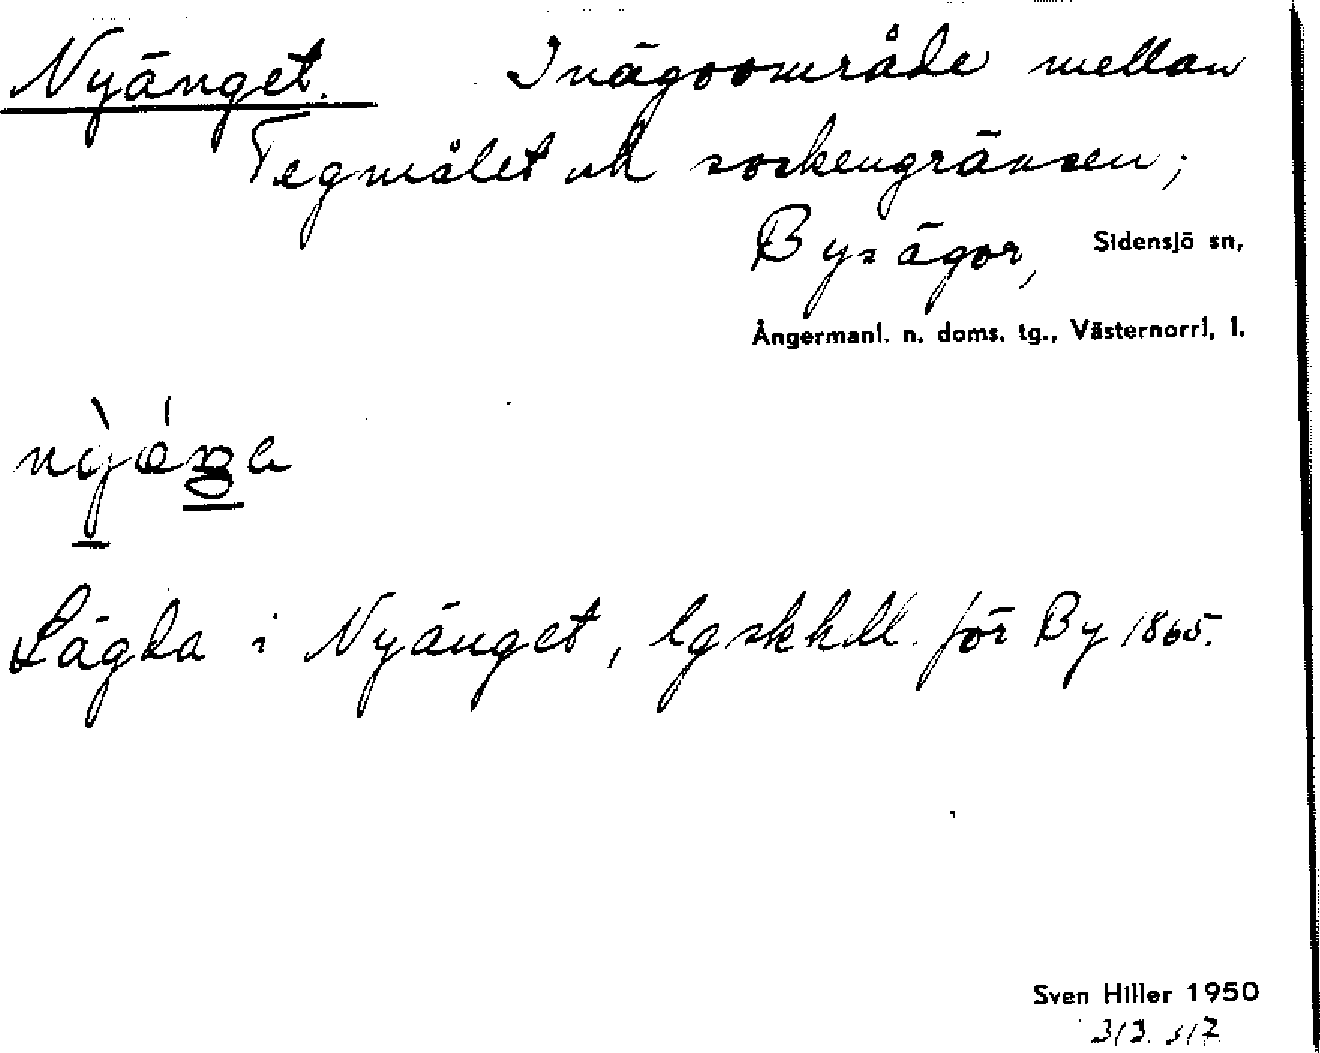 Nyänget. Inägoområde mellan
Tegmålet och sockengränsen;
Bys ägor, Sidensjö sn,
Ångermanl. n. doms. tg., Västernorrl, l.
Lägda i Nyänget, lgskhdl. för By 1865.
Sven Hiller 1950